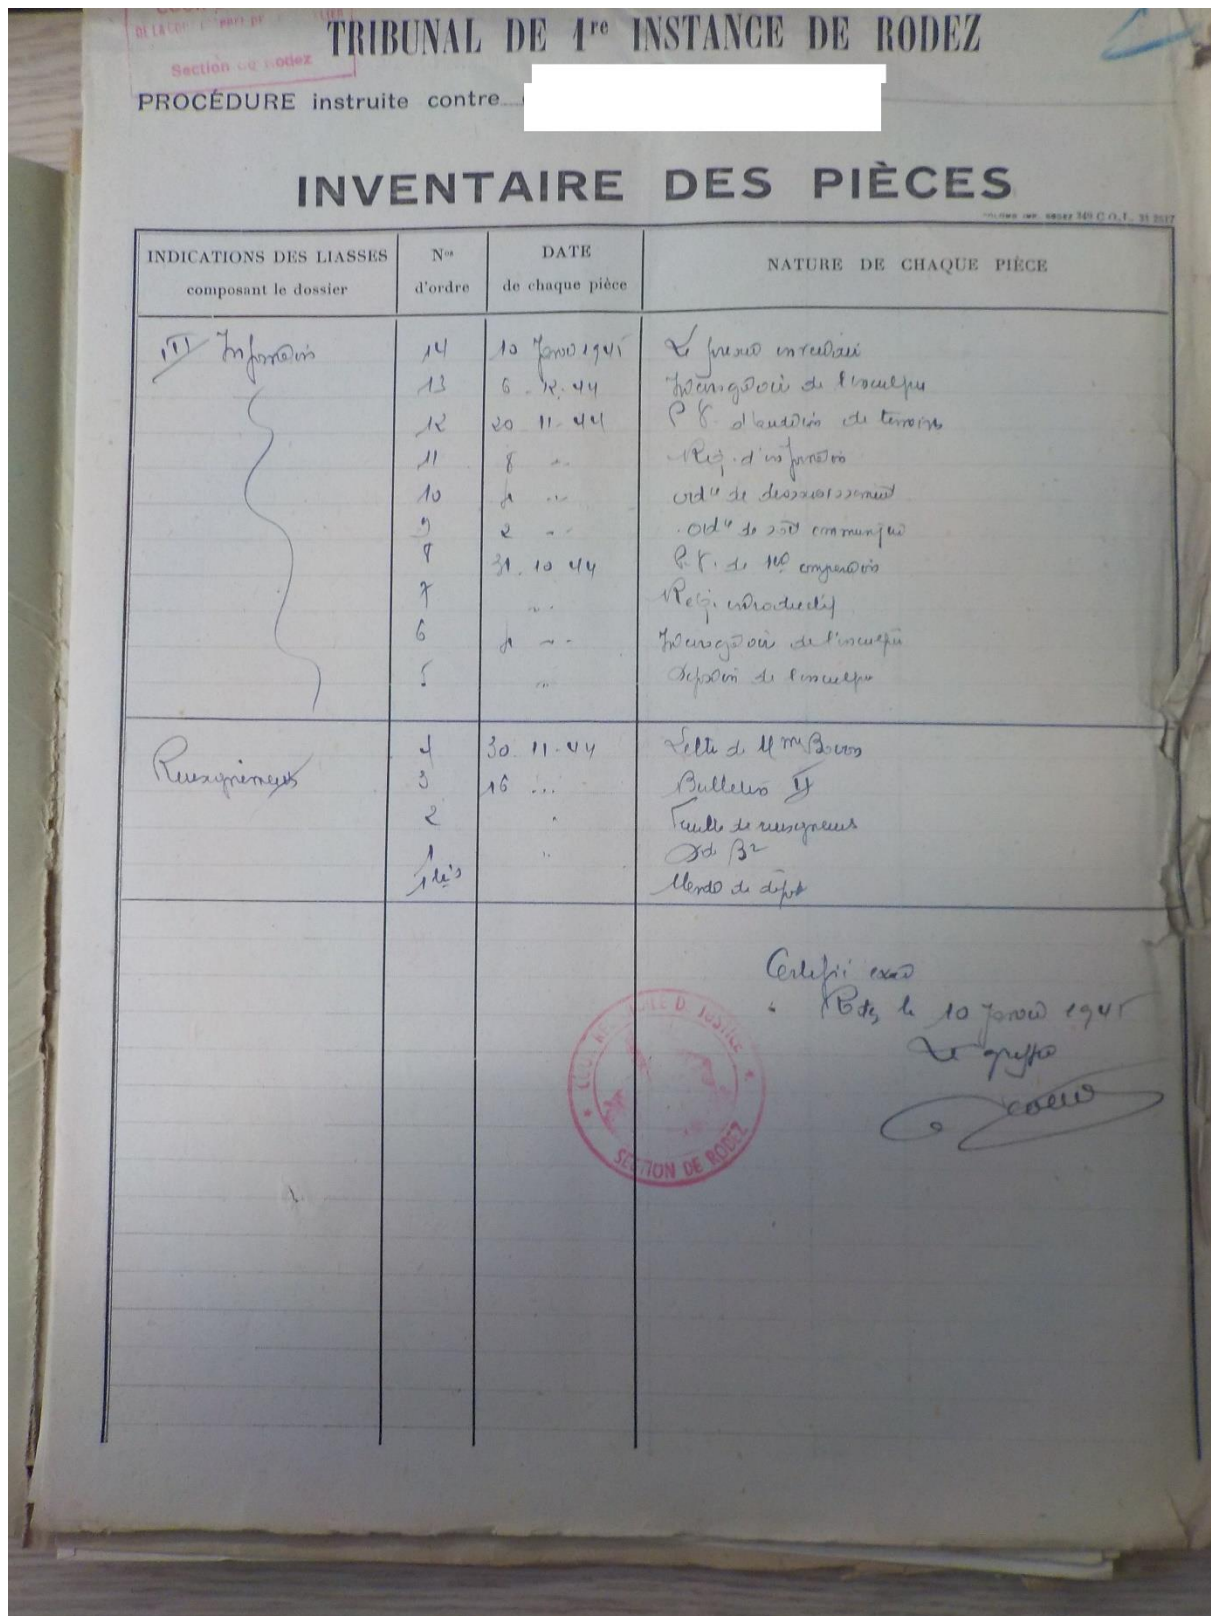 TRIBUNAL DE 1re INSTANCE DE RODEZ
Section de Rodez
PROCÉDURE instruite contre
INVENTAIRE DES PIÈCES
INDICATIONS DES LIASSES composant le dossier
Nos d'ordre
DATE de chaque pièce
NATURE DE CHAQUE PIÈCE
III Information 14 10 Janvier 1945 Le present inventaire
13 6 . 12 . 44 Interrogatoire de l'inculpé
12 20 11 - 44 P.V. d'audition de temoins
11 8 " Req. d'information
10 " ordce de dessaisissement
9 2 " ordce de soit communiqué
8 31 . 10 44 P.V. de 1re comparution
7 " Req. introductif
6 " Interrogatoire de l'inculpé
5 " de l'inculpé
Renseignements 4 30 . 11 - 44 Lettre de Mme
3 16 " Bulletin II
2 " Feuille de renseignements
1 "
1 bis Mandat de dépôt
Certifié exact
Rodez le 10 Janvier 1945
Le greffier
COUR DE JUSTICE
SECTION DE RODEZ